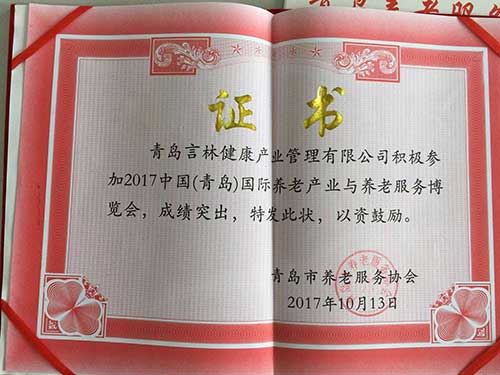 证 书
青岛言林健康产业管理有限公司积极参
加2017中国(青岛)国际养老产业与养老服务博
览会，成绩突出，特发此状，以资鼓励。
青岛市养老服务协会
2017年10月13日